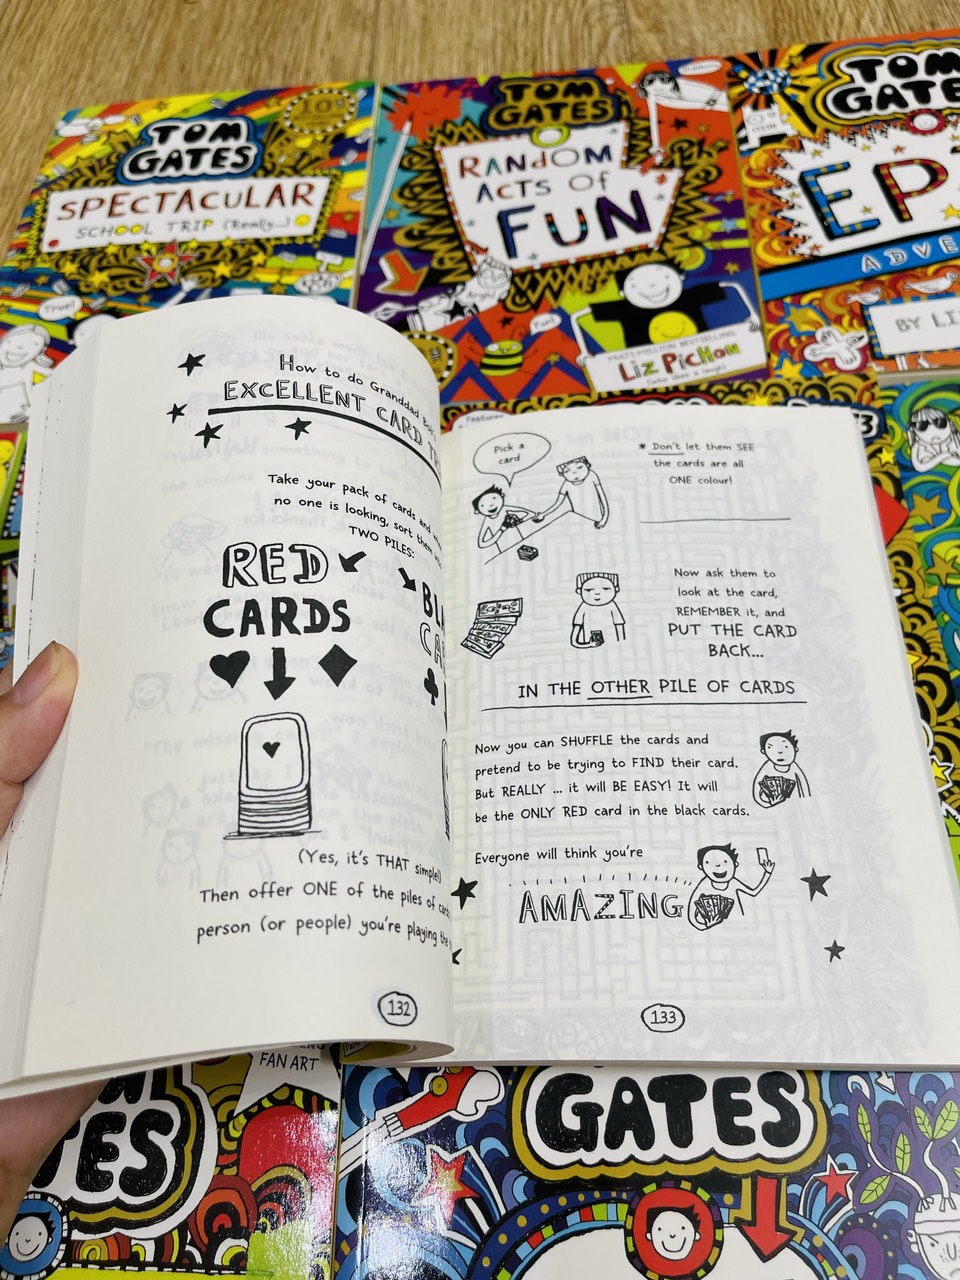 10
TOM
GATES
SPECTACULAR
SCHOOL TRIP (Really...)
TOM
GATES
RANDOM
ACTS OF
FUN
Fun!
MULTI-MILLION BESTSELLING
LIZ PICHON
TOM
GATE
EP
ADVE
BY LI
How to do Granddad Bob's
EXCELLENT CARD TR
Take your pack of cards and
no one is looking, sort them
TWO PILES:
RED
CARDS
BL
CA
(Yes, it's THAT simple!)
Then offer ONE of the piles of
person (or people) you're playing the
132
Pick a
card
* Don't let them SEE
the cards are all
ONE colour!
Now ask them to
look at the card,
REMEMBER it, and
PUT THE CARD
BACK...
IN THE OTHER PILE OF CARDS
Now you can SHUFFLE the cards and
pretend to be trying to FIND their card.
But REALLY ... it will BE EASY! It will
be the ONLY RED card in the black cards.
Everyone will think you're
AMAZING
133
FAN ART
TES
GATES